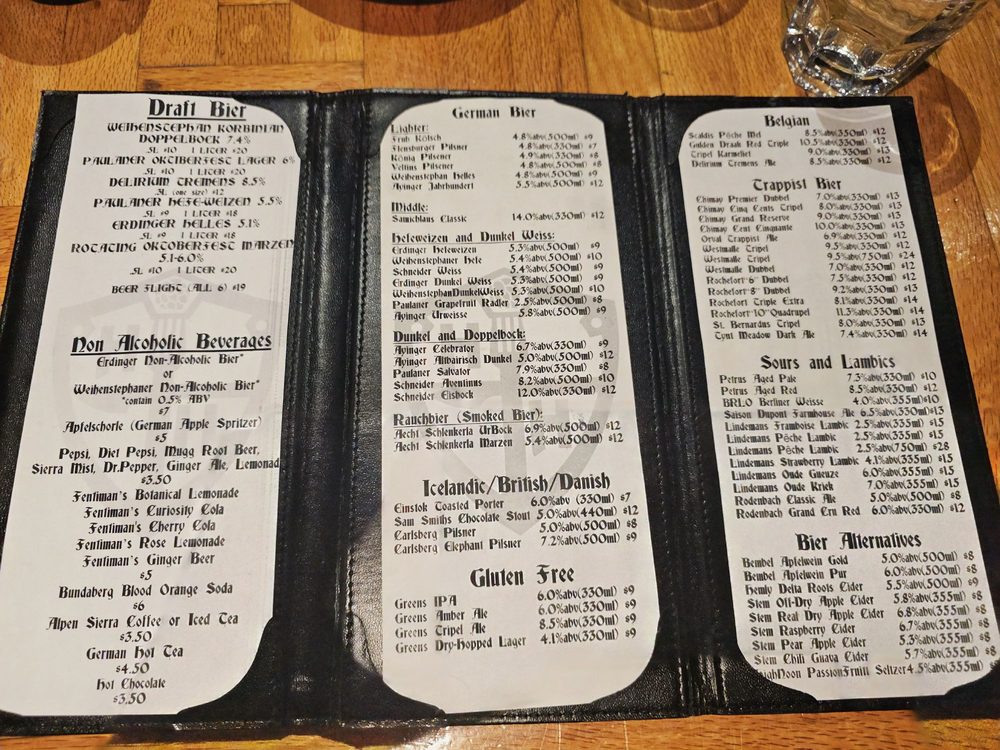 Draft Bier
WEIHENSTEPHAN KORBINIAN
DOPPELBOCK 7.4%
.5L $10 1 LITER $20
PAULANER OKTIBERFEST LAGER 6%
.5L $10 1 LITER $20
DELIRIUM TREMENS 8.5%
.5L (one size) $12
PAULANER HEFE-WEIZEN 5.5%
.5L $9 1 LITER $18
ERDINGER HELLES 5.1%
.5L $9 1 LITER $18
ROTATING OKTOBERFEST MARZEN
5.1-6.0%
.5L $10 1 LITER $20
BEER FLIGHT (ALL 6) $19
Non Alcoholic Beverages
Erdinger Non-Alcoholic Bier*
or
Weihenstephaner Non-Alcoholic Bier*
*contain 0.5% ABV
$7
Apfelschorle (German Apple Spritzer)
$5
Pepsi, Diet Pepsi, Mugg Root Beer,
Sierra Mist, Dr.Pepper, Ginger Ale, Lemonad
$3.50
Fentiman's Botanical Lemonade
Fentiman's Curiosity Cola
Fentiman's Cherry Cola
Fentiman's Rose Lemonade
Fentiman's Ginger Beer
$5
Bundaberg Blood Orange Soda
$6
Alpen Sierra Coffee or Iced Tea
$3.50
German Hot Tea
$4.50
Hot Chocolate
$3.50
German Bier
Lighter:
Fruh Kolsch 4.8%abv(500ml) $9
Flensburger Pilsner 4.8%abv(330ml) $7
König Pilsener 4.9%abv(500ml) $8
Veltins Pilsener 4.8%abv(500ml) $8
Weihenstephan Helles 4.8%abv(500ml) $9
Ayinger Jahrhundert 5.5%abv(500ml) $12
Middle:
Samichlaus Classic 14.0%abv(330ml) $12
Hefeweizen and Dunkel Weiss:
Erdinger Hefeweizen 5.3%abv(500ml) $9
Weihenstephaner Hefe 5.4%abv(500ml) $10
Schneider Weiss 5.4%abv(500ml) $9
Erdinger Dunkel Weiss 5.3%abv(500ml) $9
WeihenstephanDunkelWeiss 5.3%abv(500ml) $10
Paulaner Grapefruit Radler 2.5%abv(500ml) $8
Ayinger Urweisse 5.8%abv(500ml) $9
Dunkel and Doppelbock:
Ayinger Celebrator 6.7%abv(330ml) $9
Ayinger Altbairisch Dunkel 5.0%abv(500ml) $12
Paulaner Salvator 7.9%abv(330ml) $8
Schneider Aventinus 8.2%abv(500ml) $10
Schneider Eisbock 12.0%abv(330ml) $12
Rauchbier (Smoked Bier):
Aecht Schlenkerla UrBock 6.9%abv(500ml) $12
Aecht Schlenkerla Marzen 5.4%abv(500ml) $12
Icelandic/British/Danish
Einstok Toasted Porter 6.0%abv (330ml) $7
Sam Smiths Chocolate Stout 5.0%abv(440ml) $12
Carlsberg Pilsner 5.0%abv(500ml) $8
Carlsberg Elephant Pilsner 7.2%abv(500ml) $9
Gluten Free
Greens IPA 6.0%abv(330ml) $9
Greens Amber Ale 6.0%abv(330ml) $9
Greens Tripel Ale 8.5%abv(330ml) $9
Greens Dry-Hopped Lager 4.1%abv(330ml) $9
Belgian
Scaldis Pêche Mel 8.5%abv(330ml) $12
Gulden Draak Red Triple 10.5%abv(330ml) $12
Tripel Karmeliet 9.0%abv(330ml) $13
Delirium Tremens Ale 8.5%abv(330ml) $12
Trappist Bier
Chimay Premier Dubbel 7.0%abv(330ml) $13
Chimay Cinq Cents Tripel 8.0%abv(330ml) $13
Chimay Grand Reserve 9.0%abv(330ml) $13
Chimay Cent Cinquante 10.0%abv(330ml) $13
Orval Trappist Ale 6.9%abv(330ml) $12
Westmalle Tripel 9.5%abv(330ml) $12
Westmalle Tripel 9.5%abv(750ml) $24
Westmalle Dubbel 7.0%abv(330ml) $12
Rochefort"6" Dubbel 7.5%abv(330ml) $12
Rochefort"8" Dubbel 9.2%abv(330ml) $13
Rochefort Triple Extra 8.1%abv(330ml) $14
Rochefort"10"Quadrupel 11.3%abv(330ml) $14
St. Bernardus Tripel 8.0%abv(330ml) $13
Tynt Meadow Dark Ale 7.4%abv(330ml) $14
Sours and Lambics
Petrus Aged Pale 7.3%abv(330ml) $10
Petrus Aged Red 8.5%abv(330ml) $12
BRLO Berliner Weisse 4.0%abv(355ml) $10
Saison Dupont Farmhouse Ale 6.5%abv(330ml) $13
Lindemans Framboise Lambic 2.5%abv(355ml) $15
Lindemans Pêche Lambic 2.5%abv(355ml) $15
Lindemans Pêche Lambic 2.5%abv(750ml) $28
Lindemans Strawberry Lambic 4.1%abv(355ml) $15
Lindemans Oude Gueuze 6.0%abv(355ml) $15
Lindemans Oude Kriek 7.0%abv(355ml) $15
Rodenbach Classic Ale 5.0%abv(500ml) $8
Rodenbach Grand Cru Red 6.0%abv(330ml) $12
Bier Alternatives
Bembel Apfelwein Gold 5.0%abv(500ml) $8
Bembel Apfelwein Pur 6.0%abv(500ml) $8
Hemly Delta Roots Cider 5.5%abv(500ml) $9
Stem Off-Dry Apple Cider 5.8%abv(355ml) $8
Stem Real Dry Apple Cider 6.8%abv(355ml) $8
Stem Raspberry Cider 6.7%abv(355ml) $8
Stem Pear Apple Cider 5.3%abv(355ml) $8
Stem Chili Guava Cider 5.7%abv(355ml) $8
ighNoon PassionFruitt Seltzer4.5%abv(355ml)